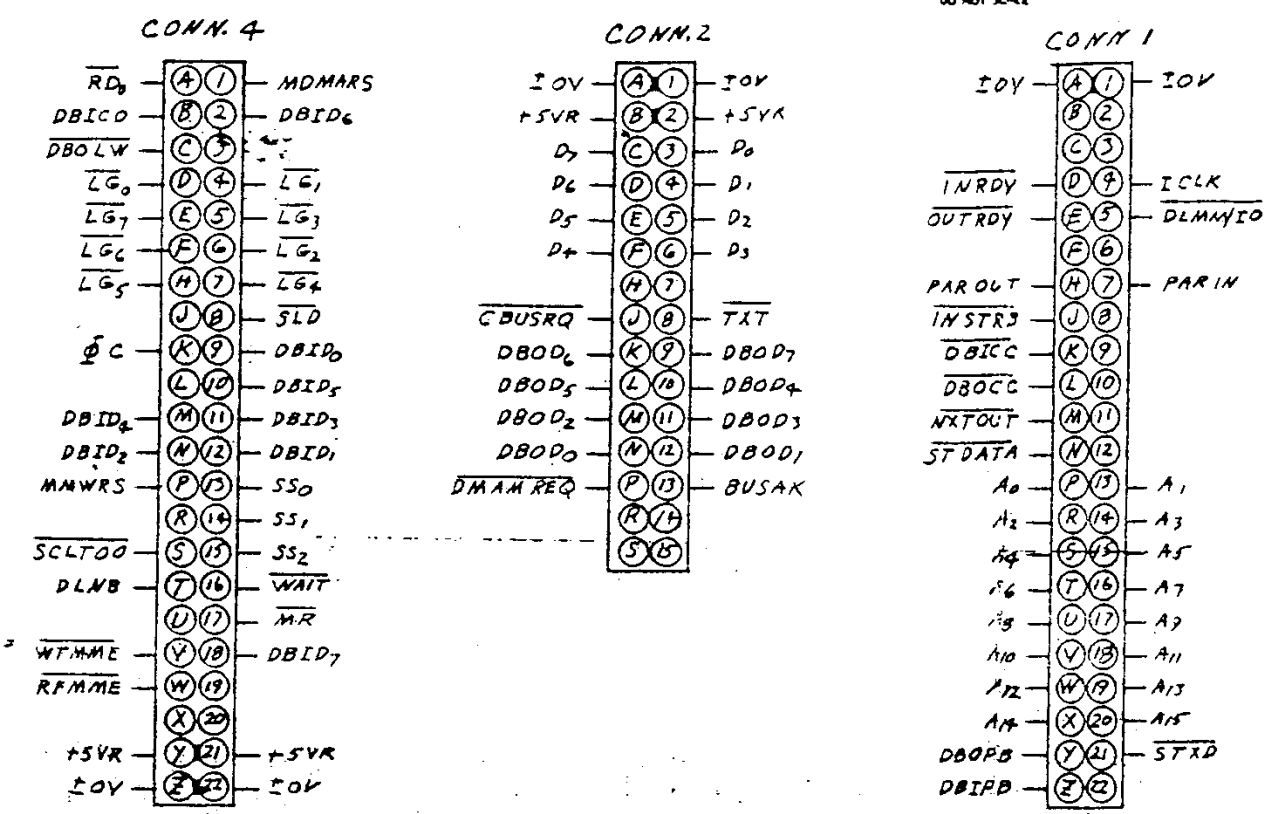 CONN. 4
RD₀ A 1 MDMARS
DBICO B 2 DBID₆
DBOLW C 3
LG₀ D 4 LG₁
LG₇ E 5 LG₃
LG₆ F 6 LG₂
LG₅ H 7 LG₄
J 8 SLD
ΦC K 9 DBID₀
L 10 DBID₅
DBID₄ M 11 DBID₃
DBID₂ N 12 DBID₁
MMWRS P 13 SS₀
R 14 SS₁
SCLTOO S 15 SS₂
DLNB T 16 WAIT
U 17 MR
WTMME V 18 DBID₇
RFMME W 19
X 20
+5VR Y 21 +5VR
±OV Z 22 ±OV
CONN. 2
±OV A 1 ±OV
+5VR B 2 +5VR
D₇ C 3 D₀
D₆ D 4 D₁
D₅ E 5 D₂
D₄ F 6 D₃
H 7
CBUSRQ J 8 TXT
DBOD₆ K 9 DBOD₇
DBOD₅ L 10 DBOD₄
DBOD₂ M 11 DBOD₃
DBOD₀ N 12 DBOD₁
DMAMREQ P 13 BUSAK
R 14
S 15
CONN 1
±OV A 1 ±OV
B 2
C 3
INRDY D 4 ICLK
OUTRDY E 5 DLMM/IO
F 6
PAROUT H 7 PARIN
INSTRB J 8
DBICC K 9
DBOCC L 10
NXTOUT M 11
STDATA N 12
A₀ P 13 A₁
A₂ R 14 A₃
A₄ S 15 A₅
A₆ T 16 A₇
A₈ U 17 A₉
A₁₀ V 18 A₁₁
A₁₂ W 19 A₁₃
A₁₄ X 20 A₁₅
DBOPB Y 21 STXD
DBIPB Z 22